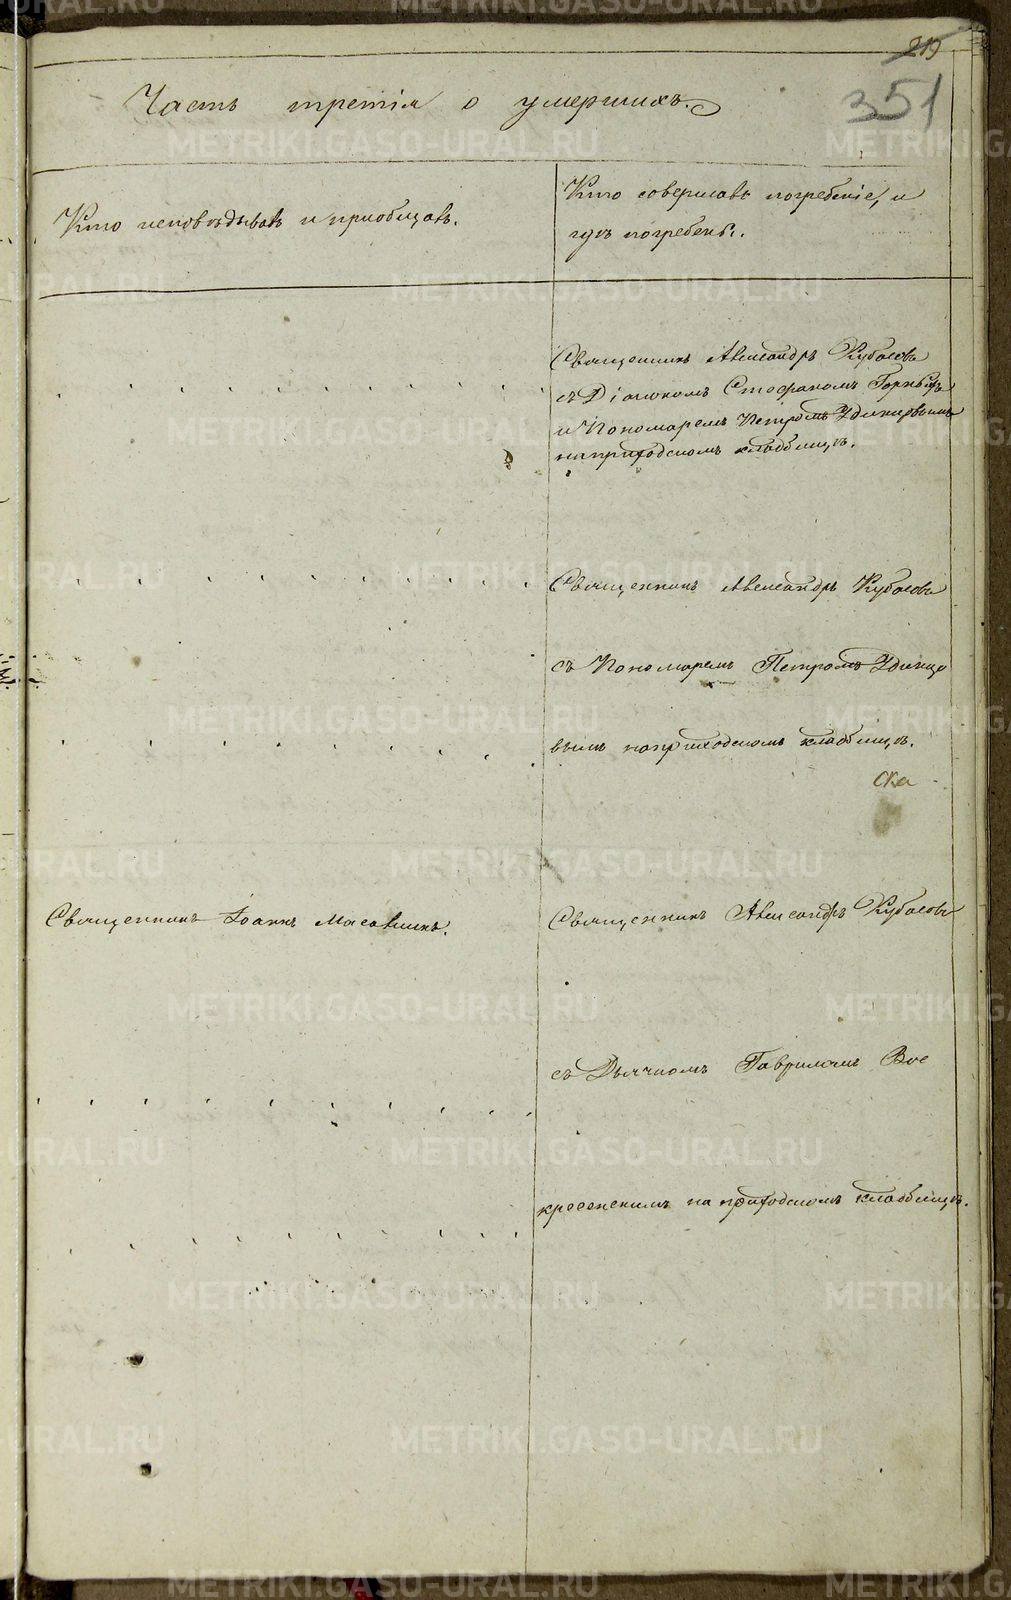 219
351
Часть третія о умершихъ.
Кто исповѣдывалъ и приобщалъ.
Кто совершалъ погребеніе, и
гдѣ погребены.
Священникъ Александръ Кубасовъ
съ Діакономъ Стефаномъ
и Пономаремъ Петромъ Удинцовымъ
на приходскомъ кладбищѣ.
Священникъ Александръ Кубасовъ
съ Пономаремъ Петромъ Удинцо
вымъ на приходскомъ кладбищѣ.
Священникъ Іоаннъ
Священникъ Александръ Кубасовъ
съ Дьячкомъ Гавриломъ Вос
кресенскимъ на приходскомъ кладбищѣ.
METRIKI.GASO-URAL.RU